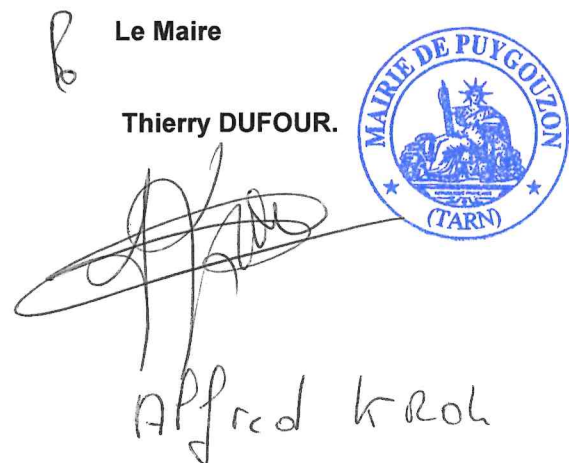 Le Maire
Thierry DUFOUR.
MAIRIE DE PUYGOUZON
(TARN)
Alfred KROL